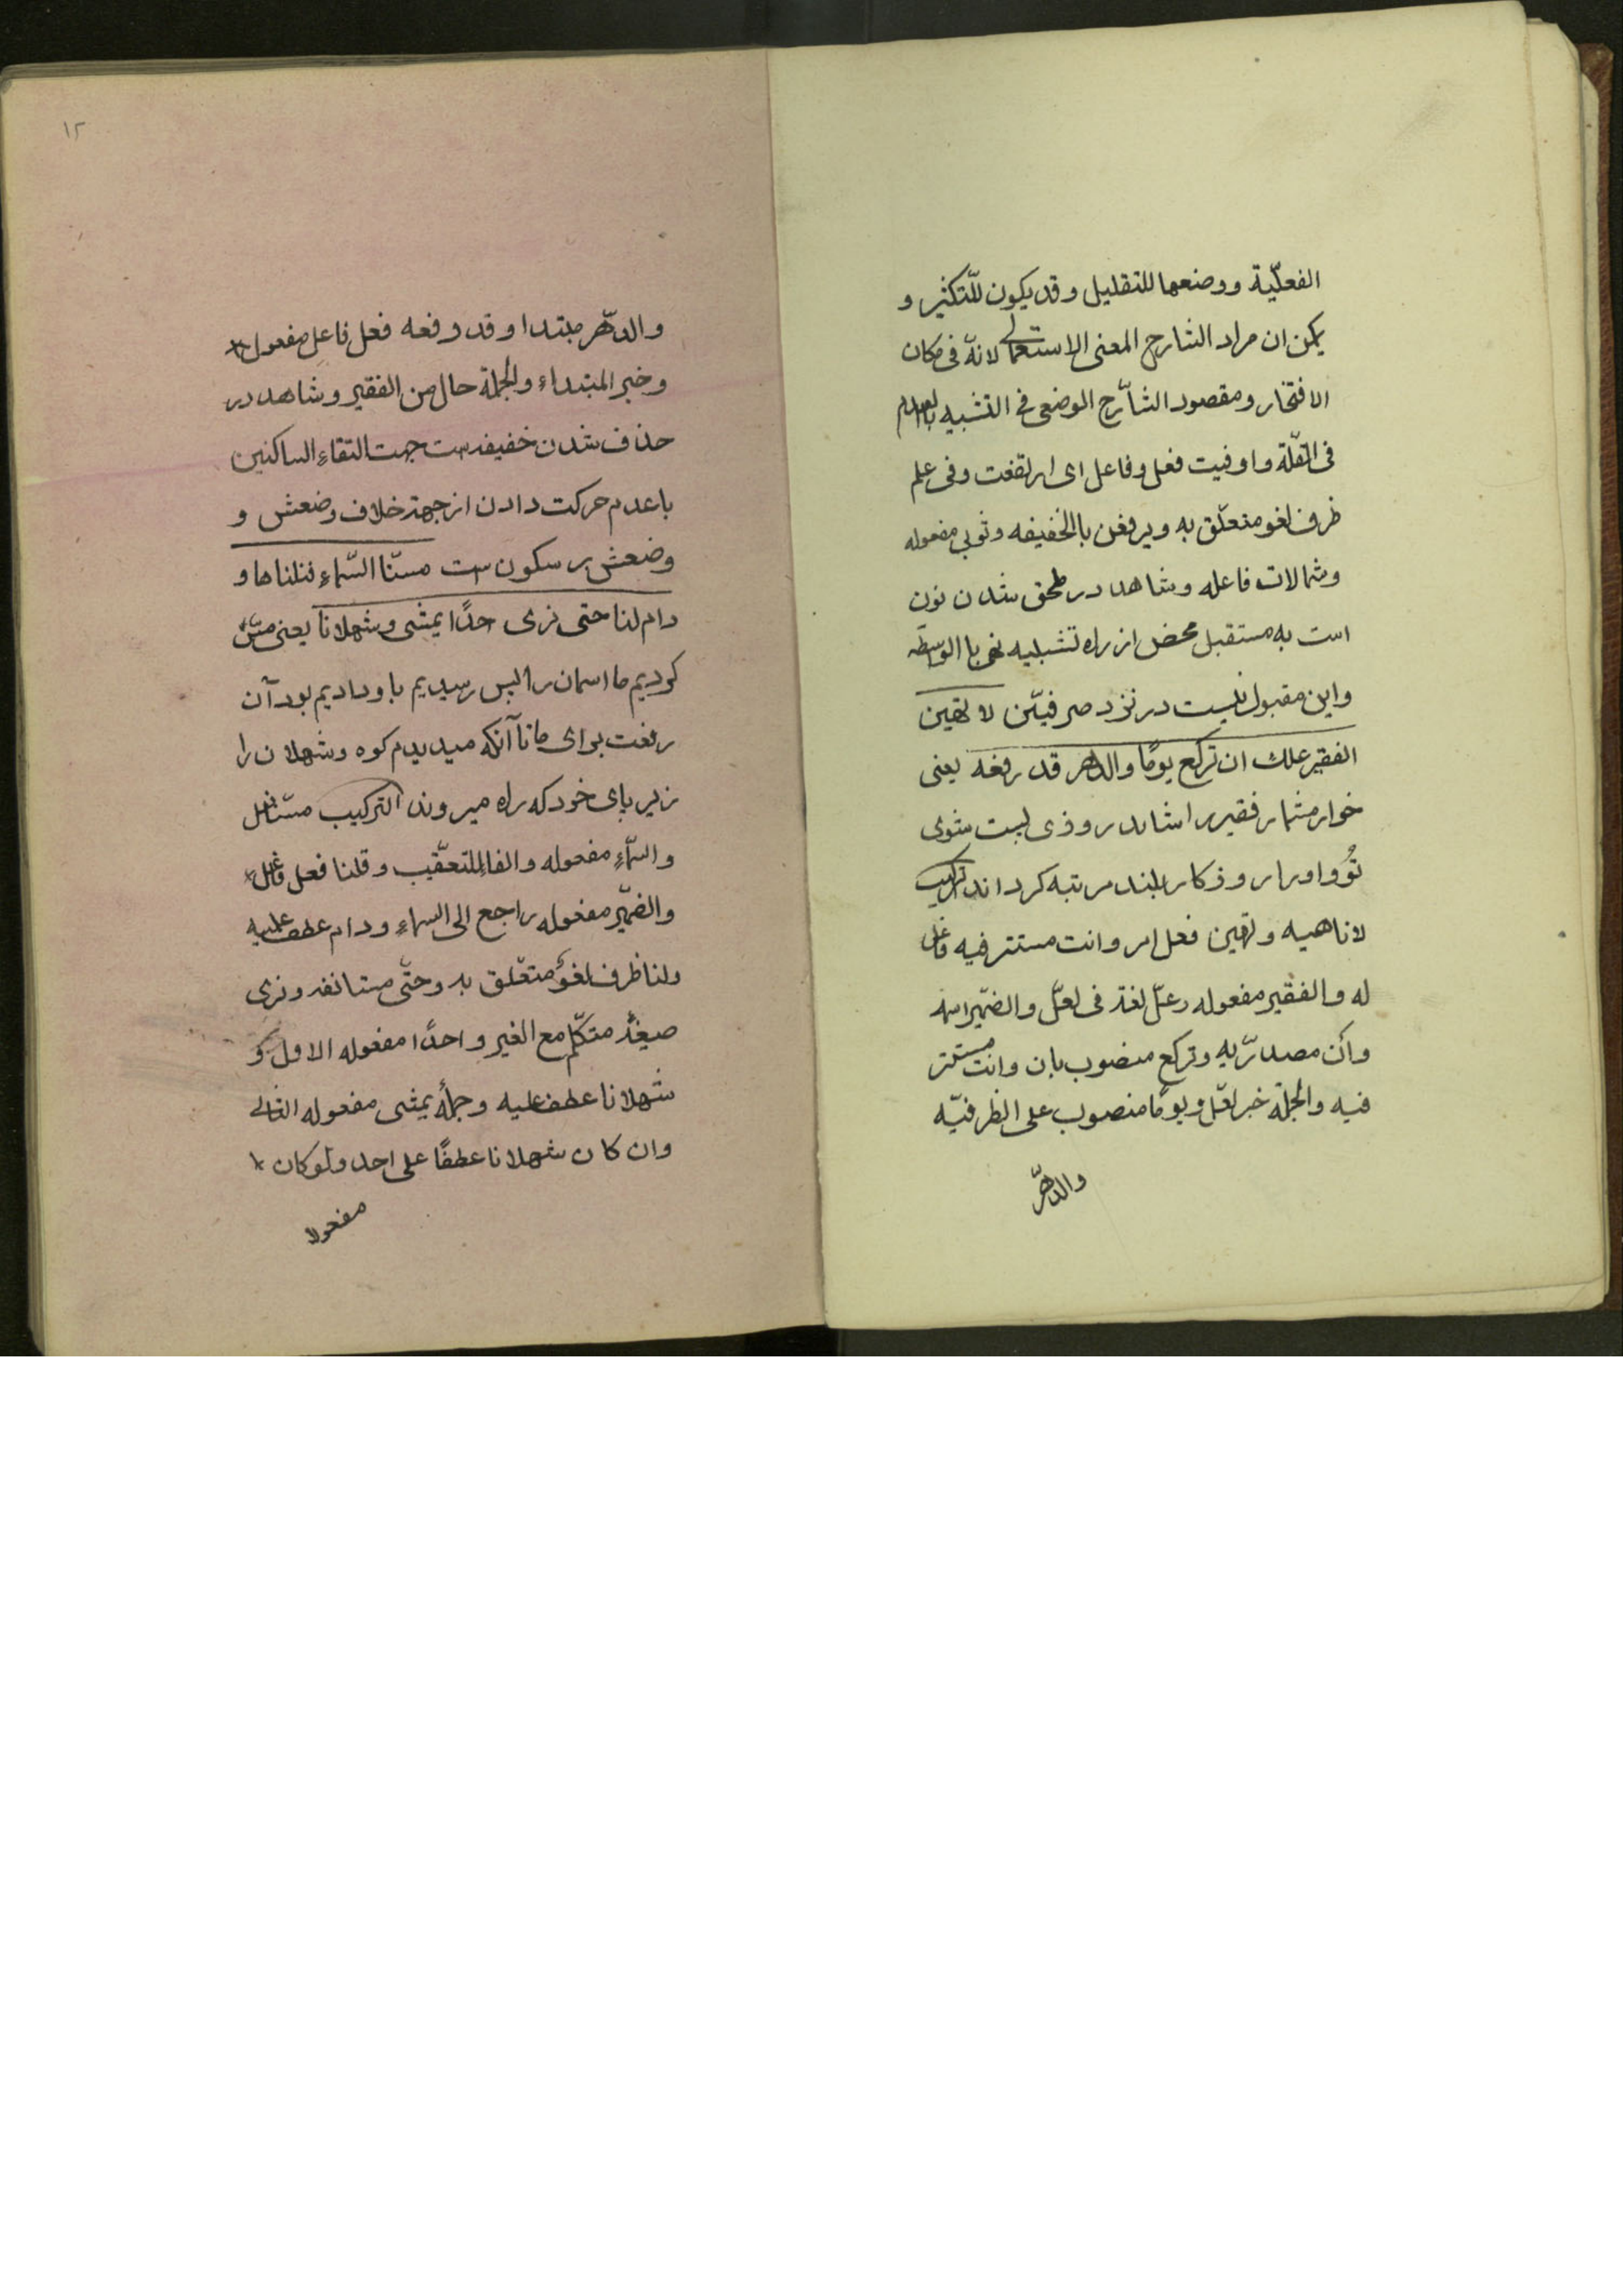 الفعلّية ووضعها للتقليل وقد يكون للتّكثير و
يمكن ان مراد الشارح المعنى الاستعمالى لانّه فى مكان
الافتخار ومقصود الشاّرح الوضعى فى التشبيه بالعدم
فى القّلة واوفيت فعل وفاعل اى ارتفعت وفى علم
ظرف لغو متعلّق به ويرفعن بالخفيفه وثوبى مفعوله
وشمالات فاعله وشاهد در ملحق شدن نون
است به مستقبل محض از راه تشبيه نفى با الوّاسطه
واين مقبول نيست در نزد صرفيّن لا تهين
الفقير علك ان تركع يومًا والدهر قد رفعه يعنى
خوار مشمار فقير را شايد روذى پست شوى
تُو و اورا روذكار بلند مرتبه كرداند تركيب
لا ناهيه وتهين فعل امر وانت مستتر فيه فاعل
له والفقير مفعوله وعلّ لغة فى لعّل والضمّير اسمه
وأن مصدرّيه وتركع منصوب بان وانت مستتر
فيه والجملة خبر لعّل ويومًا منصوب على الظرفيّه
والدهّر
١٢
والدهّر مبتدا وقد رفعه فعل فاعل مفعول
وخبر المبتداء والجملة حال من الفقير وشاهد در
حذف شدن خفيفه ست جهت التقاء الساكنين
با عدم حركت دادن از جهة خلاف وضعش و
وضعش بر سكون ست مسنّا السّماء فنلناها و
دام لنا حتى نرى احدًا يمشى وشهلانا يعنى مسّ
كرديم ما اسمان را پس رسيديم باو داديم بود آن
رفعت براى ما تا آنكه ميديديم كوه وشهلان را
زير پاى خود كه راه ميروند التركيب مسنا فعل
والسّماء مفعوله والفا للتعقّيب وقلنا فعل فاعل
والضمّير مفعوله راجع الى السماء ودام عطف عليه
ولنا ظرف لغوٌ متعّلق به وحتّى مستانفه ونرى
صيغهٔ متكّلم مع الغير واحدًا مفعوله الاول و
شهلانا عطف عليه وجملهٔ يمشى مفعوله الثانى
وان كان شهلانا عطفًا على احد ولو كان
مفعولا